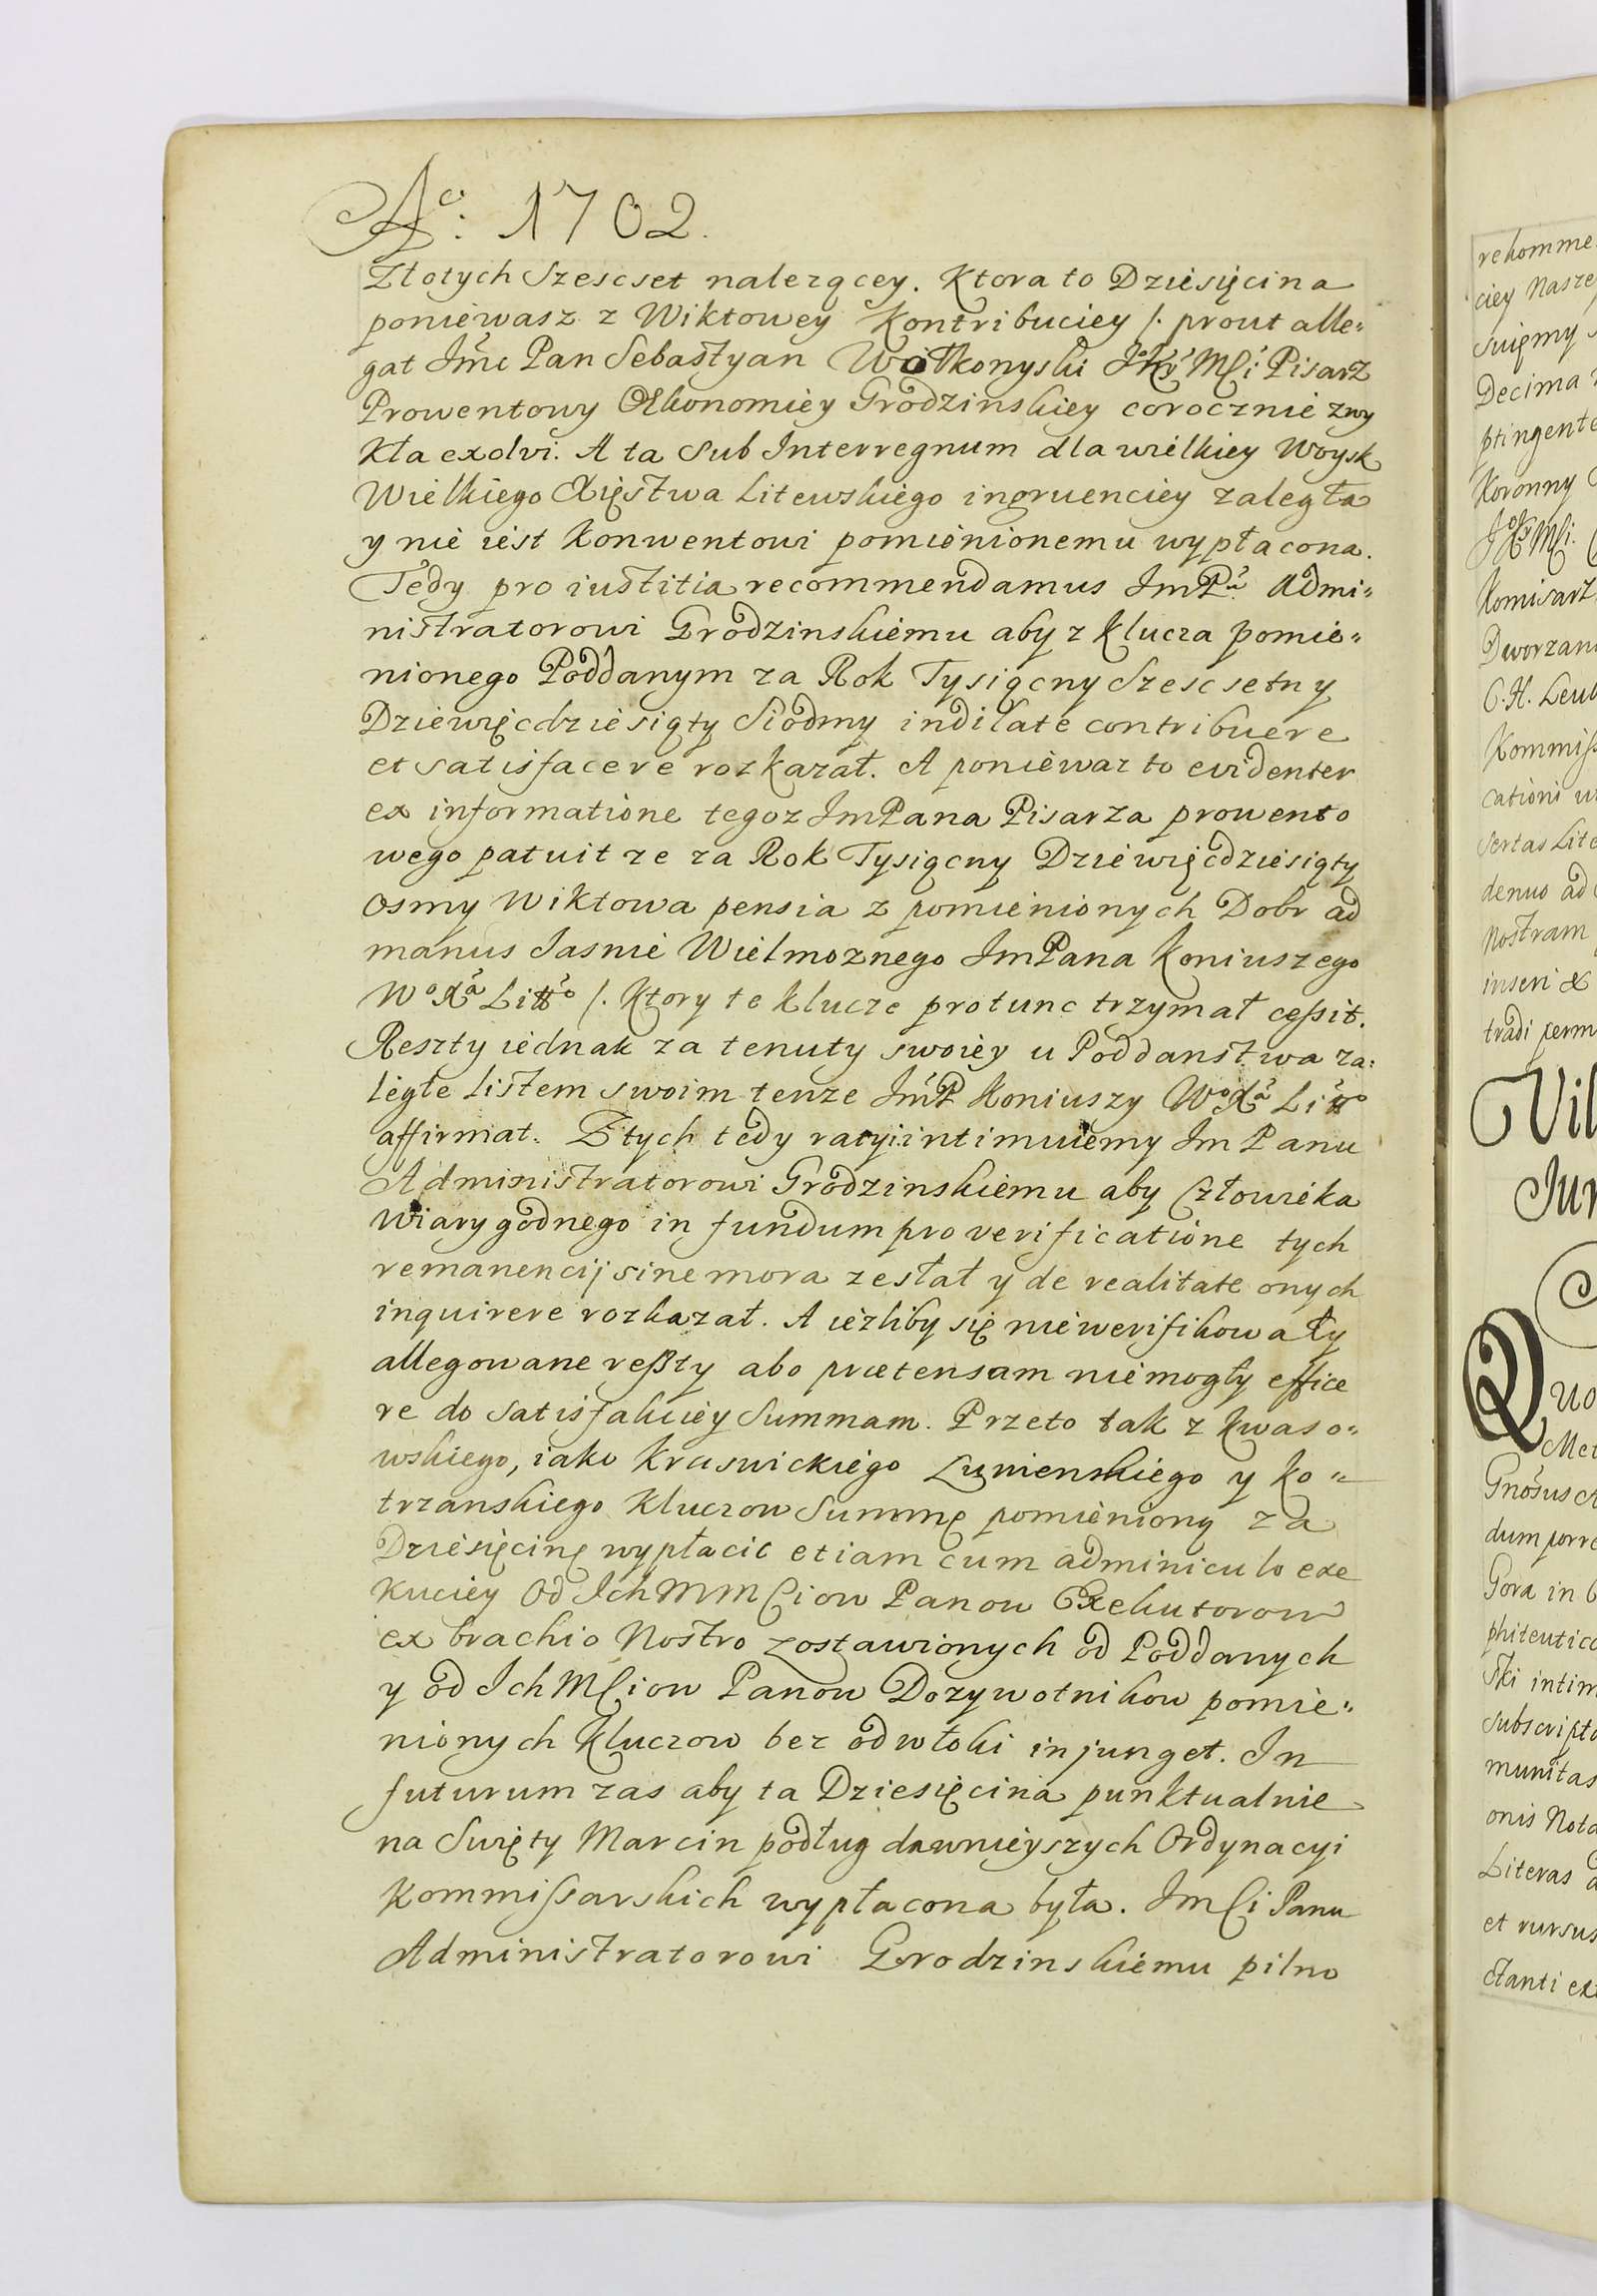 Aº: 1702.
Złotych Szescset nalezącey. Ktora to Dziesięcina
poniewasz z Wiktowey Kontribuciey /. prout alle„
gat Jmc Pan Sebastyan Wołkonyski JKr Mſi Pisarz
Prowentowy Oekonomiey Grodzinskiey corocznie zwy
kła exolvi. A ta Sub Interregnum dla wielkiey Woysk
Wielkiego Xięstwa Litewskiego ingruenciey zaległa
y nie iest Konwentowi pomienionemu wypłacona.
Tedy pro iustitia recommendamus JmPu Admi„
nistratorowi Grodzinskiemu aby z klucza pomie„
nionego Poddanym za Rok Tysiącny Szescsetny
Dziewięcdziesiąty Siodmy indilate contribuere
et satisfacere rozkazał. A poniewaz to evidenter
ex informatione tegoz JmPana Pisarza prowento
wego patuit ze za Rok Tysiącny Dziewięcdziesiąty
Osmy Wiktowa pensia z pomienionych Dobr ad
manus Jasnie Wielmoznego JmPana Koniuszego
WºXa Littº /. Ktory te klucze protunc trzymał ceſsit.
Reszty iednak za tenuty swoiey u Poddanstwa za:
ległe listem swoim tenze JmP Koniuszy WºXa Littº
affirmat. Z tych tedy racyi intimuiemy Jm Panu
Administratorowi Grodzinskiemu aby Człowieka
Wiary godnego in fundum pro verificatione tych
remanencij sine mora zesłał y de realitate onych
inquirere rozkazał. A iezliby się niewerifikowały
allegowane reßty abo prætensam niemogły effice
re do Satisfakciey Summam. Przeto tak z Kwaso„
wskiego, iako Krasnickiego Łunienskiego y Ko„
trzanskiego Kluczow Summę pomienioną za
Dziesięcinę wypłacic etiam cum adminiculo exe
kuciey Od Ich MM Cſiow Panow Exekutorow
ex brachio Nostro zostawionych od Poddanych
y od Ich Mſciow Panow Dozywotnikow pomie„
nionych kluczow bez odwłoki injunget. In
futurum zas aby ta Dziesięcina punktualnie
na Swięty Marcin podług dawnieyszych Ordynacyi
Kommiſsarskich wypłacona była. Jm Cſi Panu
Administratorowi Grodzinskiemu pilno
rekomme
ciey Nasze
Decima
ptingente
Koronny
JKr Mſi.
Komisarz
Dworzan
Kommiſs
cationi
Sertas Lite
denuo ad
Nostram
inseri &
tradi perm
Vil
Jur
Quo
Met
dum porre
Gora in
phiteutico
ski intim
Subscripto
munitas
onis Nota
Literas
et rursus
ctanti ex